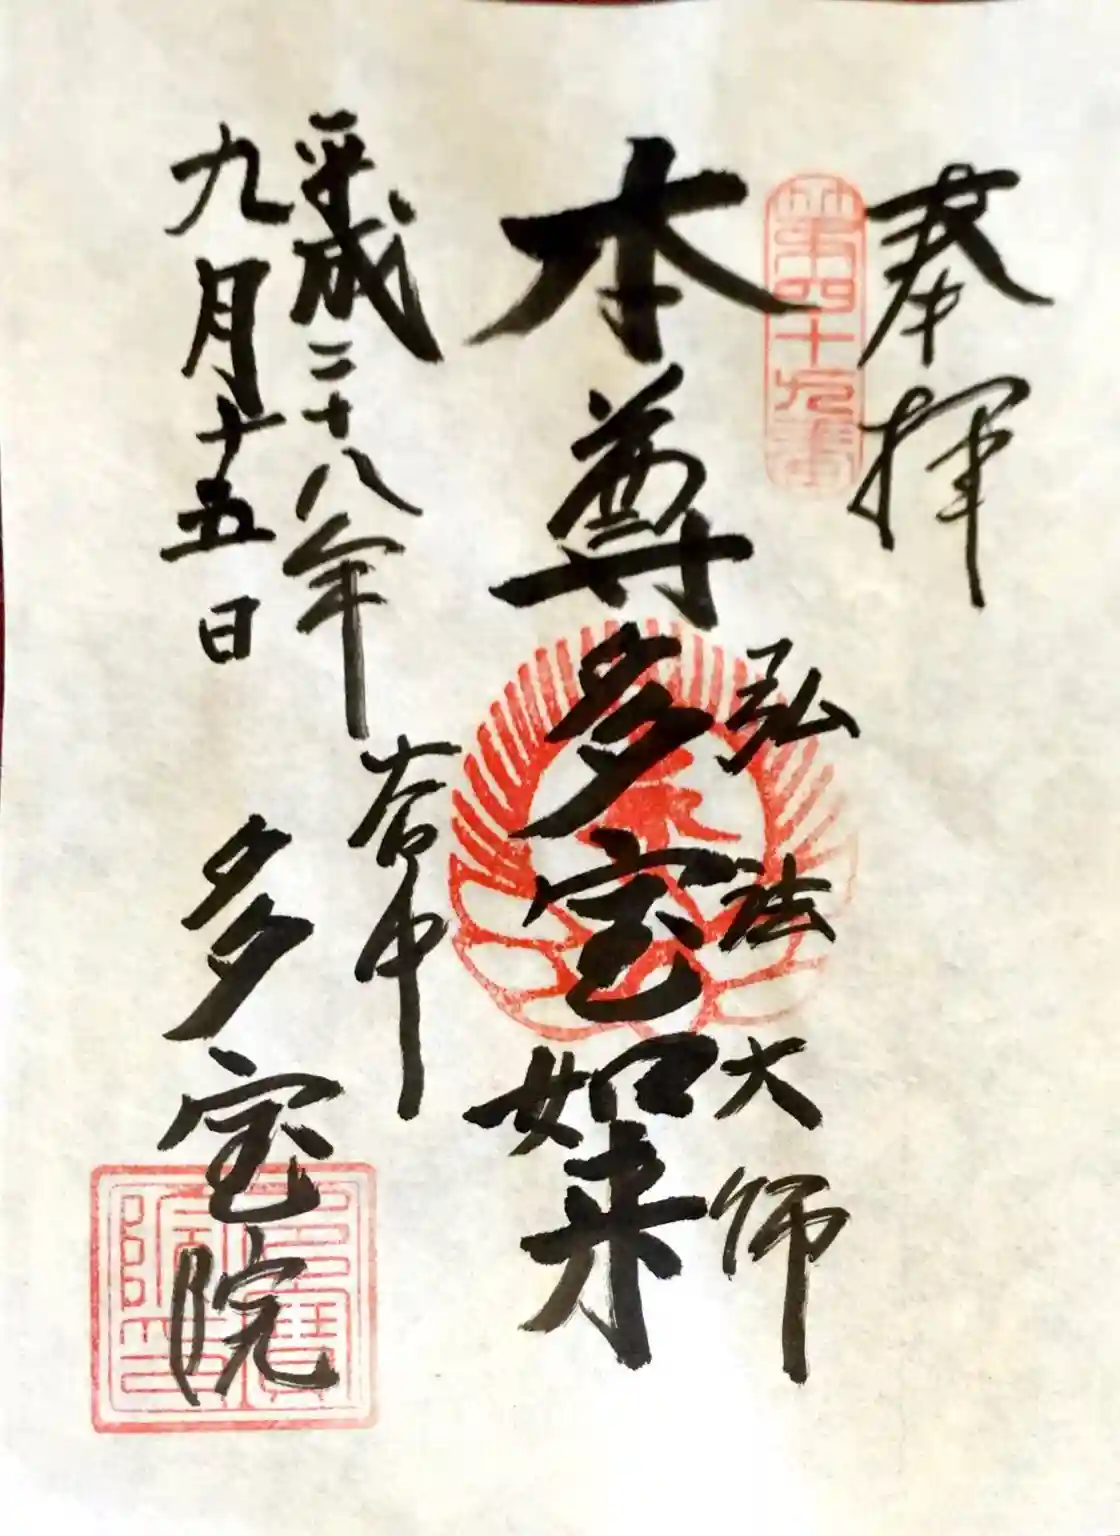 奉拝
第四十九番
弘法大師
本尊多宝如来
谷中
平成二十八年
九月十五日
多宝院
多寶院印